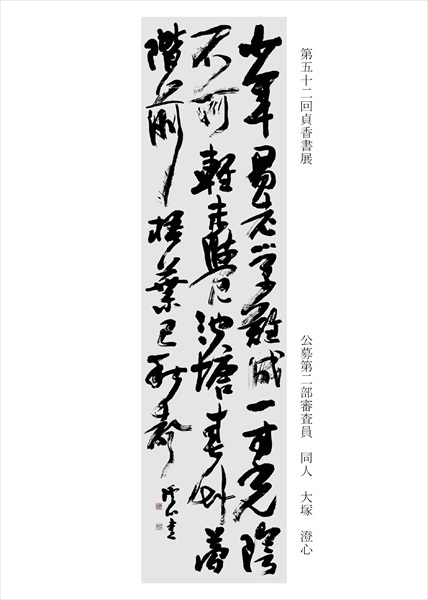 第五十二回貞香書展
公募第二部審査員　同人　大塚　澄心
少年易老学難成一寸光陰
不可軽未覺池塘春艸夢
階前梧葉已秋聲 澄心書